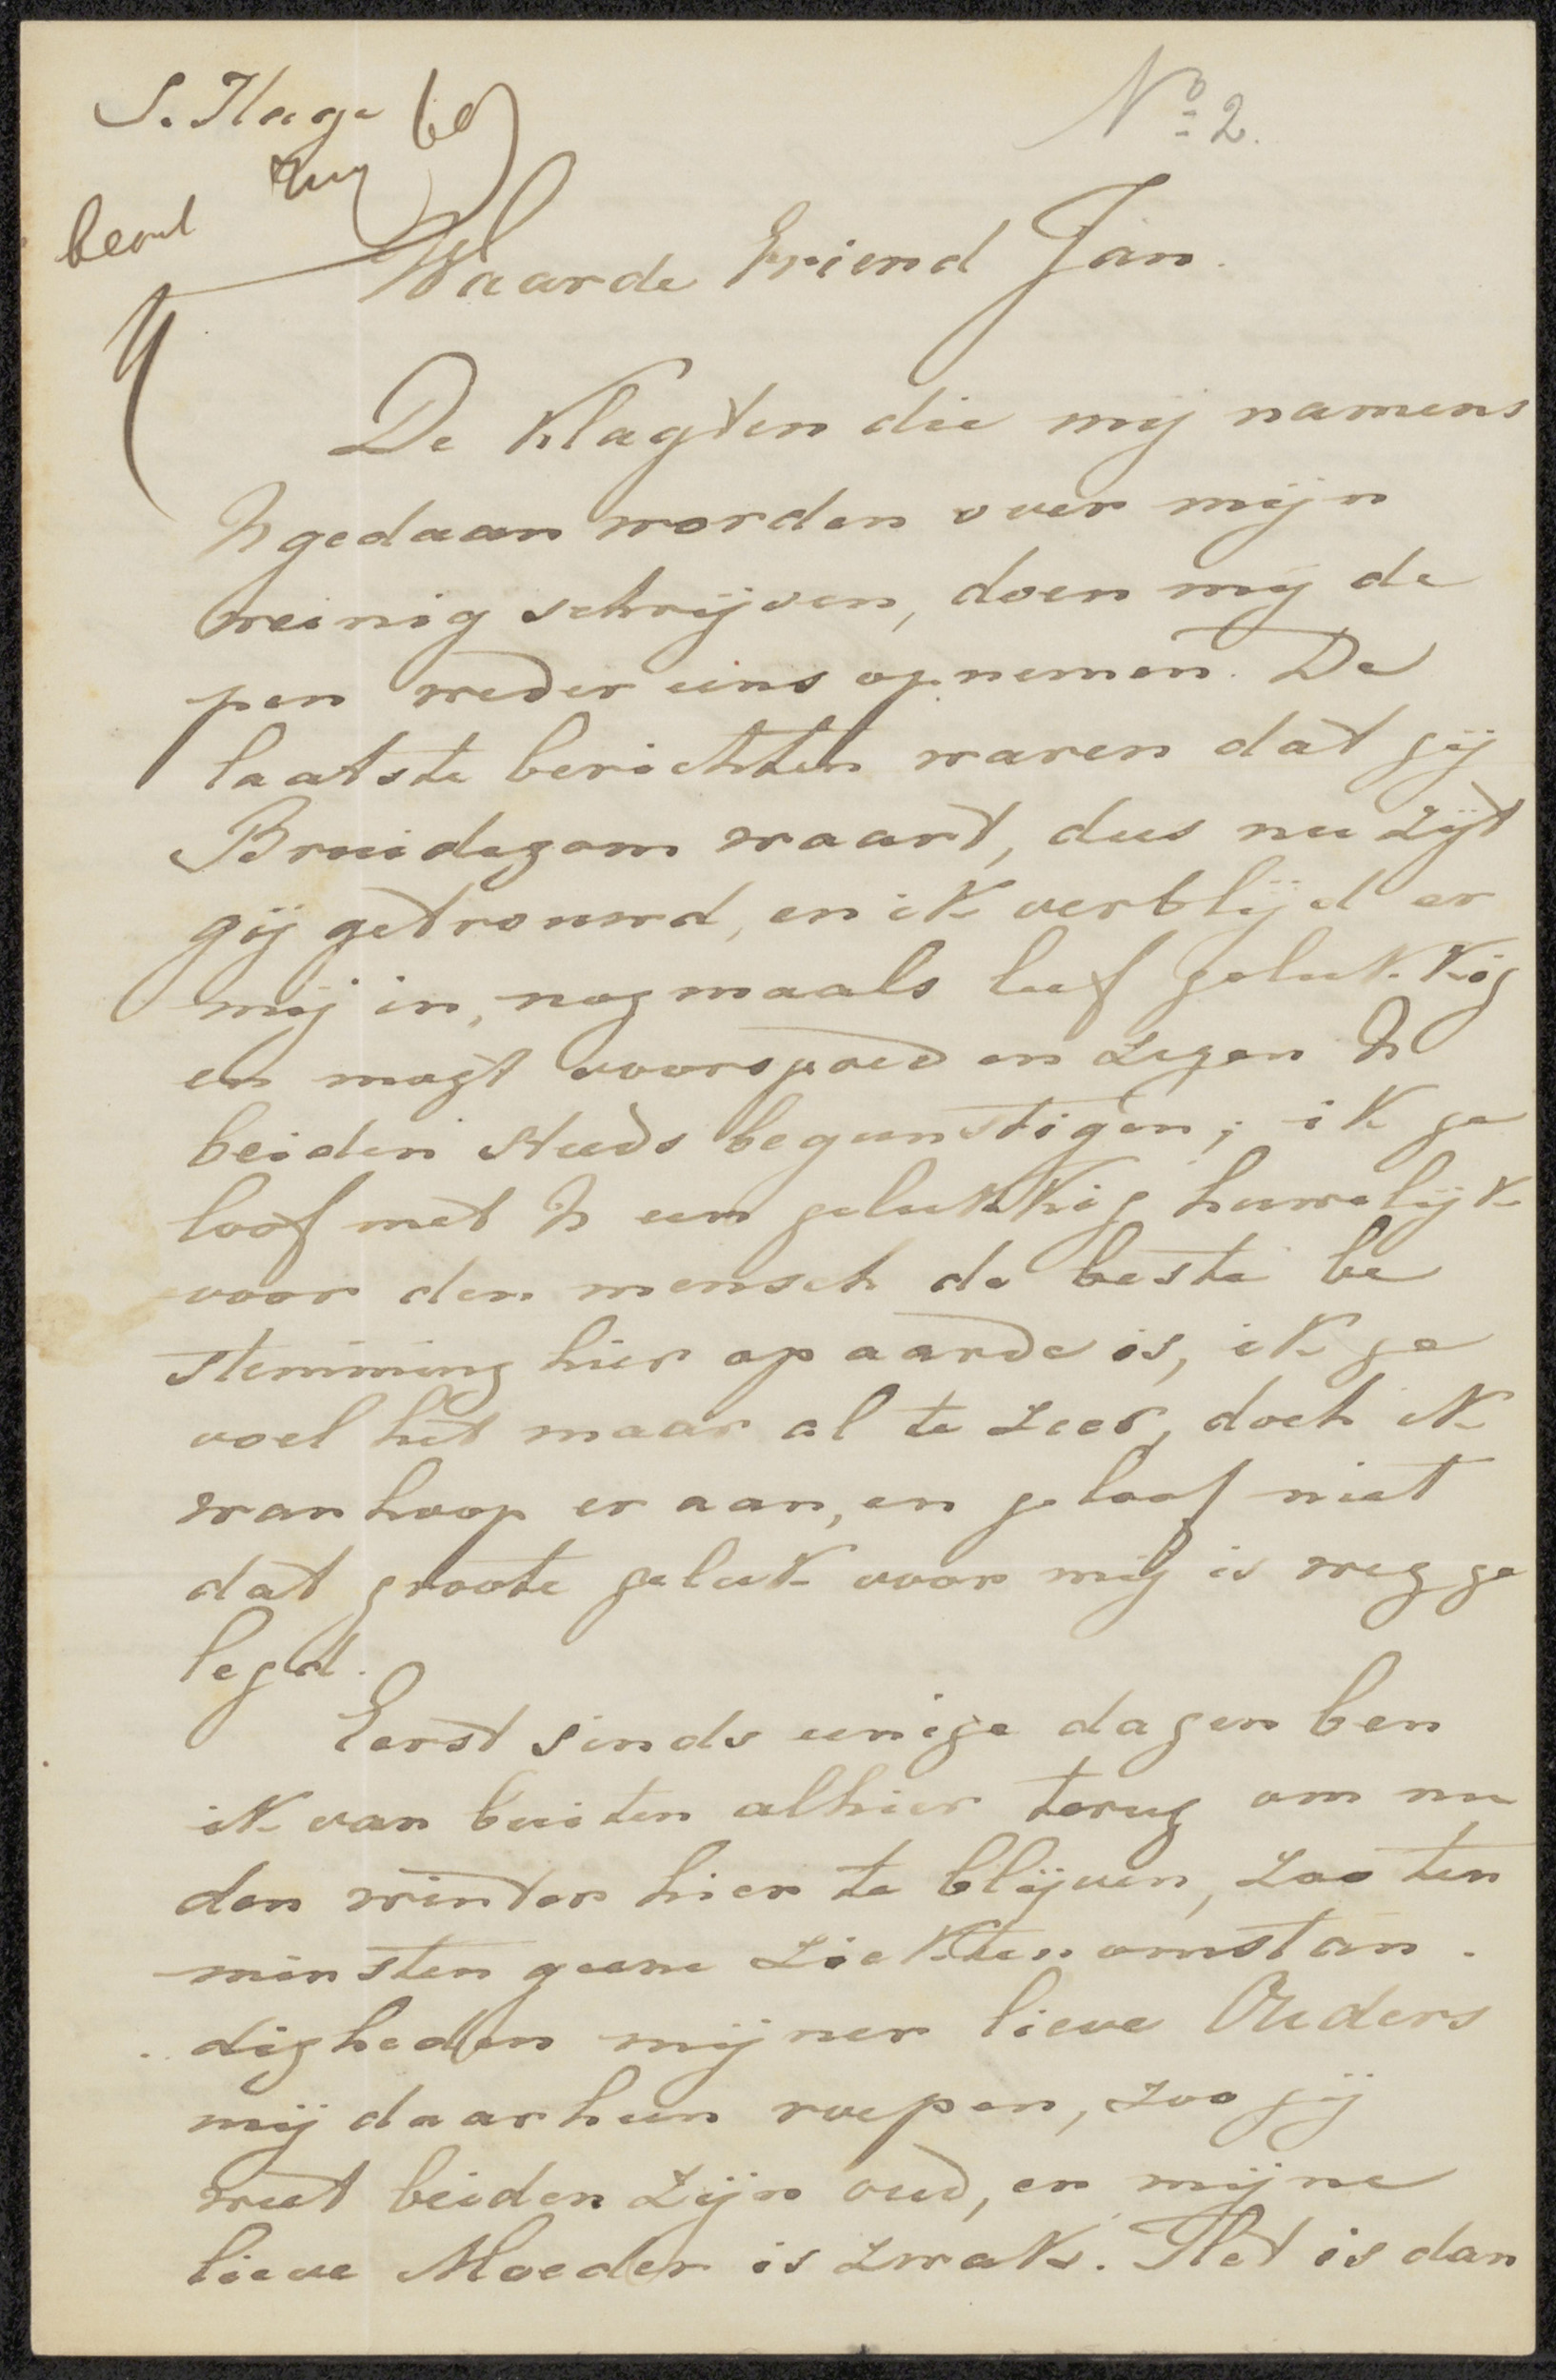 S. Hage
No 2.
beant
Waarde Vriend Jan.
De klagten die mij namens
U gedaan worden over mijn
weinig schrijven, doen mij de
pen weder eens opnemen. De
laatste berichten waren dat gij
Bruidegom waart, dus nu zijt
gij getrouwd, en ik verblijd er
mij in, nogmaals leef gelukkig
en mogt voorspoed en zegen U
beiden steeds begunstigen; ik ge
loof met U een gelukkig huwelijk
voor den mensch de beste be
stemming hier op aarde is, ik ge
voel het maar al te zeer, doch ik
wanhoop er aan, en geloof niet
dat groote geluk voor mij is wegge
legd.
Eerst sinds eenige dagen ben
ik van buiten alhier terug om nu
den winter hier te blijven, zoo ten
minsten geene ziekten omstan-
digheden mijner lieve Ouders
mij daarheen roepen, zoo gij
weet beiden zijn oud, en mijne
lieve Moeder is zwak. Het is dan